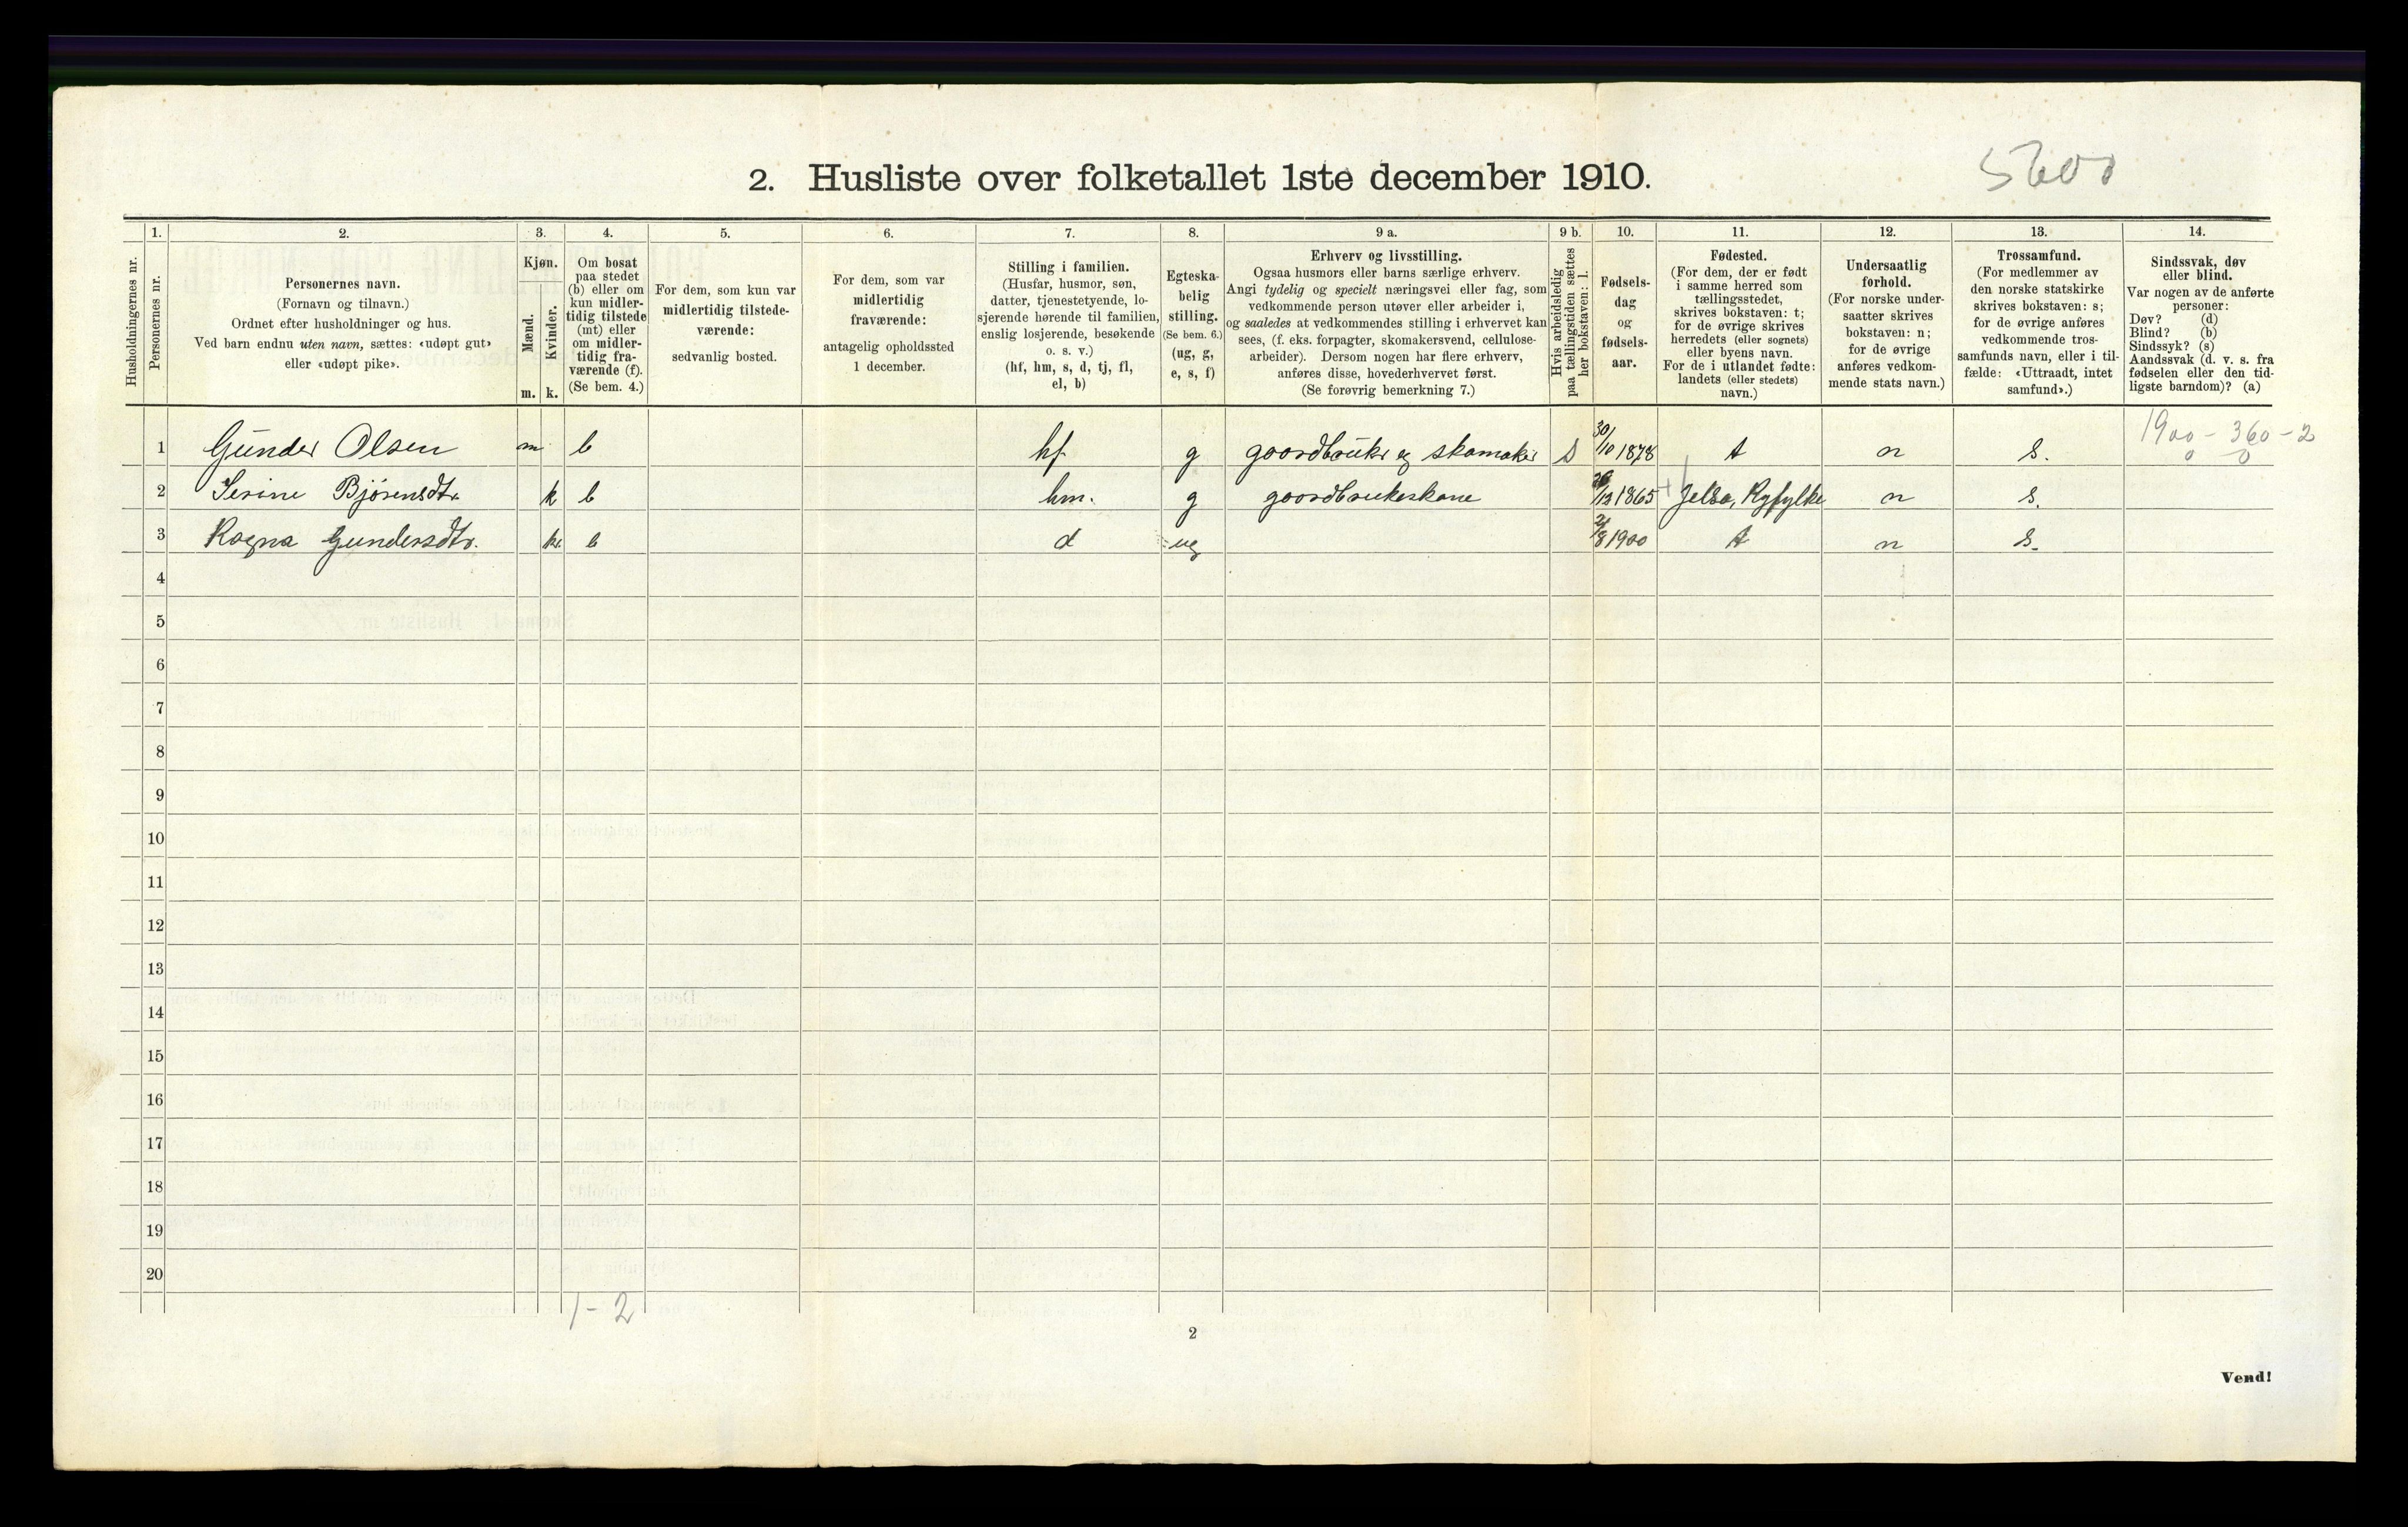 2. Husliste over folketallet 1ste december 1910.
5600
Husholdningernes nr.
1.
Personernes nr.
2.
Personernes navn.
(Fornavn og tilnavn.)
Ordnet efter husholdninger og hus.
Ved barn endnu uten navn, sættes: «udøpt gut»
eller «udøpt pike».
3.
Kjøn.
Mænd.
Kvinder.
m. k.
4.
Om bosat
paa stedet
(b) eller om
kun midler-
tidig tilstede
(mt) eller
om midler-
tidig fra-
værende (f).
(Se bem. 4.)
5.
For dem, som kun var
midlertidig tilstede-
værende:
sedvanlig bosted.
6.
For dem, som var
midlertidig
fraværende:
antagelig opholdssted
1 december.
7.
Stilling i familien.
(Husfar, husmor, søn,
datter, tjenestetyende, lo-
sjerende hørende til familien,
enslig losjerende, besøkende
o. s. v.)
(hf, hm, s, d, tj, fl,
el, b)
8.
Egteska-
belig
stilling.
(Se bem. 6.)
(ug, g,
e, s, f)
9 a.
Erhverv og livsstilling.
Ogsaa husmors eller barns særlige erhverv.
Angi tydelig og specielt næringsvei eller fag, som
vedkommende person utøver eller arbeider i,
og saaledes at vedkommendes stilling i erhvervet kan
sees, (f. eks. forpagter, skomakersvend, cellulose-
arbeider). Dersom nogen har flere erhverv,
anføres disse, hovederhvervet først.
(Se forøvrig bemerkning 7.)
9 b.
Hvis arbeidsledig
paa tællingstiden sættes
her bokstaven: l.
10.
Fødsels-
dag
og
fødsels-
aar.
11.
Fødested.
(For dem, der er født
i samme herred som
tællingsstedet,
skrives bokstaven: t;
for de øvrige skrives
herredets (eller sognets)
eller byens navn.
For de i utlandet fødte:
landets (eller stedets)
navn.)
12.
Undersaatlig
forhold.
(For norske under-
saatter skrives
bokstaven: n;
for de øvrige
anføres vedkom-
mende stats navn.)
13.
Trossamfund.
(For medlemmer av
den norske statskirke
skrives bokstaven: s;
for de øvrige anføres
vedkommende tros-
samfunds navn, eller i til-
fælde: «Uttraadt, intet
samfund».)
14.
Sindssvak, døv
eller blind.
Var nogen av de anførte
personer:
Døv? (d)
Blind? (b)
Sindssyk? (s)
Aandssvak (d. v. s. fra
fødselen eller den tid-
ligste barndom)? (a)
1900 - 360 - 2
0 0
1 Gunder Olsen m b hf g gaardbruker og skomaker s 30/10 1878 t n s.
2 Serine Bjørensdtr. k b hm. g gaardbrukeskone 1865 Jelsa, Ryfylke n s.
3 Ragna Gundersdtr. k. b d ug 1900 t n s.
4
5
6
7
8
9
10
11
12
13
14
15
16
17
18
19
20
1 - 2
2
Vend!